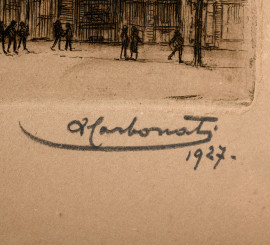 ACarbonati
1927.